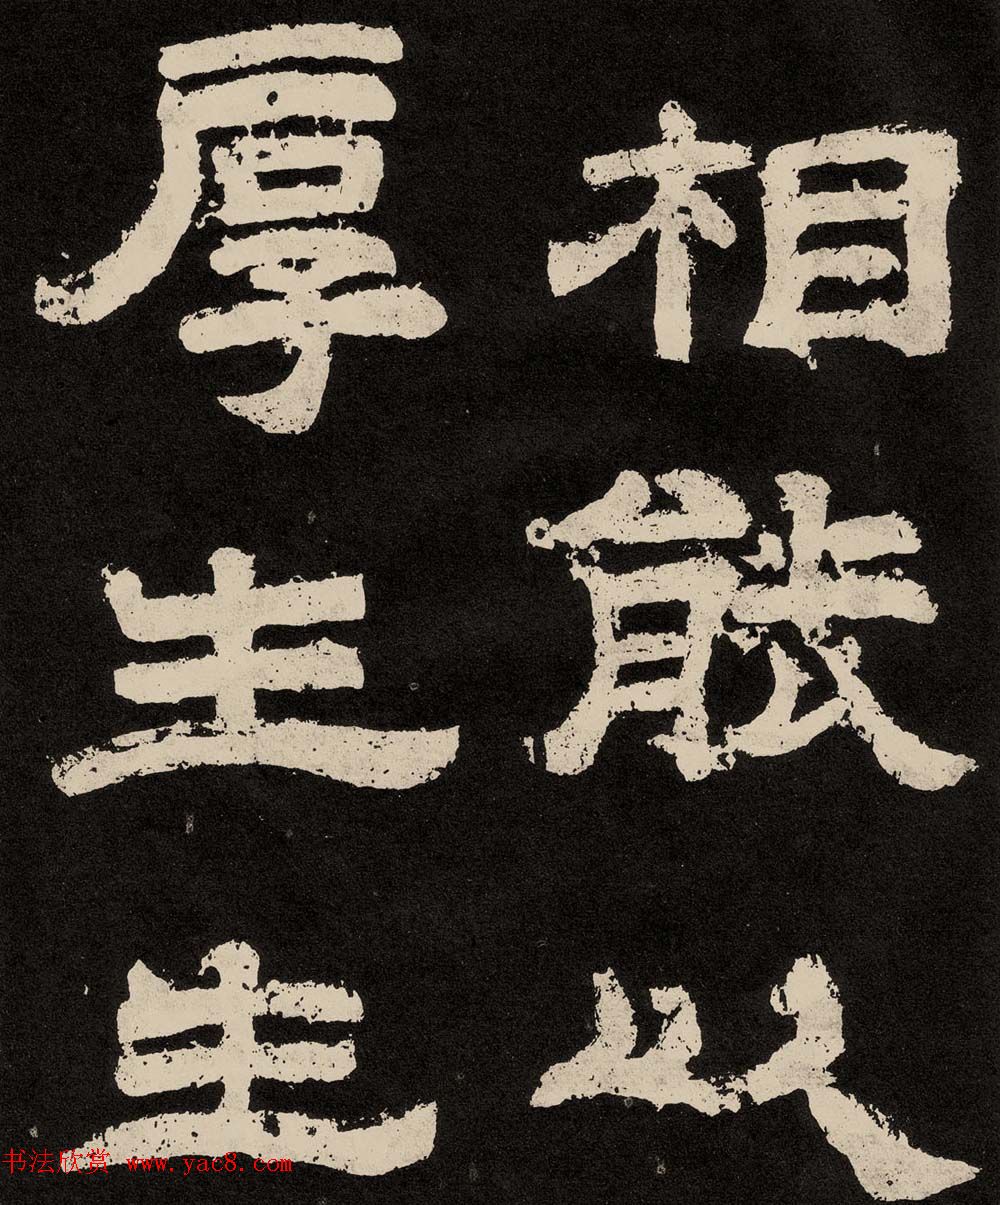 相能以
厚生生
书法欣赏 www.yac8.com